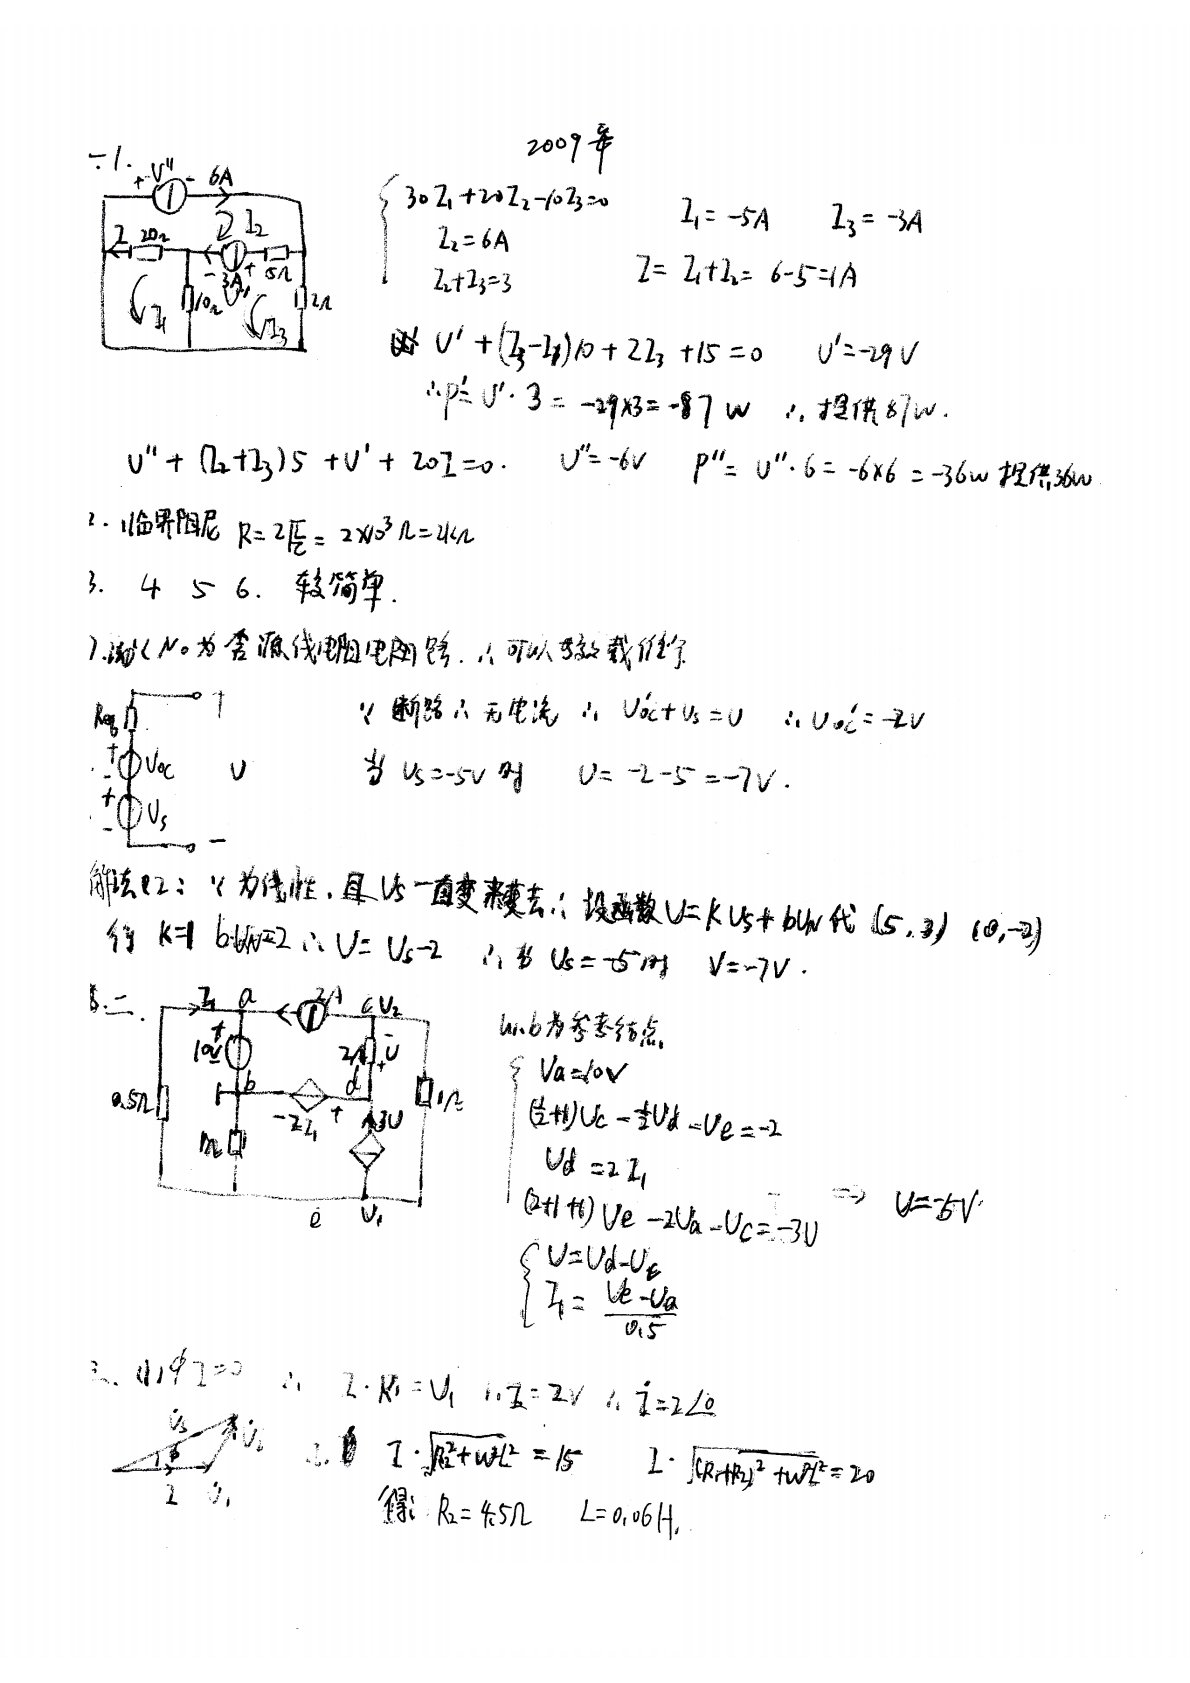 2009年
一1.
+ U'' - 6A
I 20Ω I₂
- 3A + 5Ω
I₁ 10Ω U' I₃ 2Ω
30I₁+20I₂-10I₃=0 I₁=-5A I₃=-3A
I₂=6A
I₂+I₃=3 I=I₁+I₂=6-5=1A
U'+(I₃-I₁)10+2I₃+15=0 U'=-29V
∴P'=U'·3=-29×3=-87W ∴提供87W.
U''+(I₂+I₃)5+U'+20I=0. U''=-6V P''=U''·6=-6×6=-36W提供36W
2. 临界阻尼 R=2√(L/C)=2×10³Ω=2kΩ
3. 4 5 6. 较简单.
7. ∵N₀为含源线电阻电网路. ∴可以等效戴维宁
Req + U
+ - Uoc
+ - Us -
∵断路∴无电流 ∴Uoc'+Us=U ∴Uoc'=-2V
当Us=-5V时 U=-2-5=-7V.
解法2: ∵为线性,且Us一直变来变去∴设函数U=KUs+bUN代(5,3) (0,-2)
得K=1 bUN=-2 ∴U=Us-2 ∴当Us=-5时 V=-7V.
二.
I₁ a 2A c U₂
10V + 2Ω - U +
0.5Ω b d 1Ω
-2I₁ + 3U
1Ω
e U₁
b为参考结点
Ua=10V
(½+1)Uc-½Ud-Ue=-2
Ud=2I₁
(2+1+1)Ue-2Ua-Uc=-3U ⇒ U=-5V
U=Ud-Uc
I₁=(Ue-Ua)/0.5
三. (1)φI=0 ∴ I·R₁=U₁ ∴I=2V ∴İ=2∠0
U̇s φ U̇₂
İ U̇₁
∴ I·√(R₂²+ω²L²)=15 I·√((R₁+R₂)²+ω²L²)=20
得: R₂=4.5Ω L=0.06H.